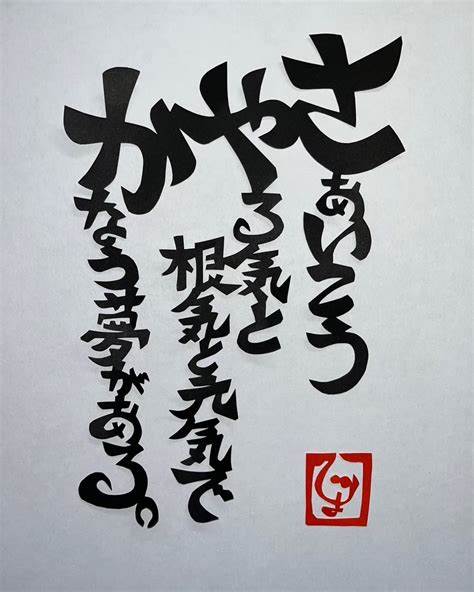 さあいこう
やる気と
根気と元気で
かなう夢がある。